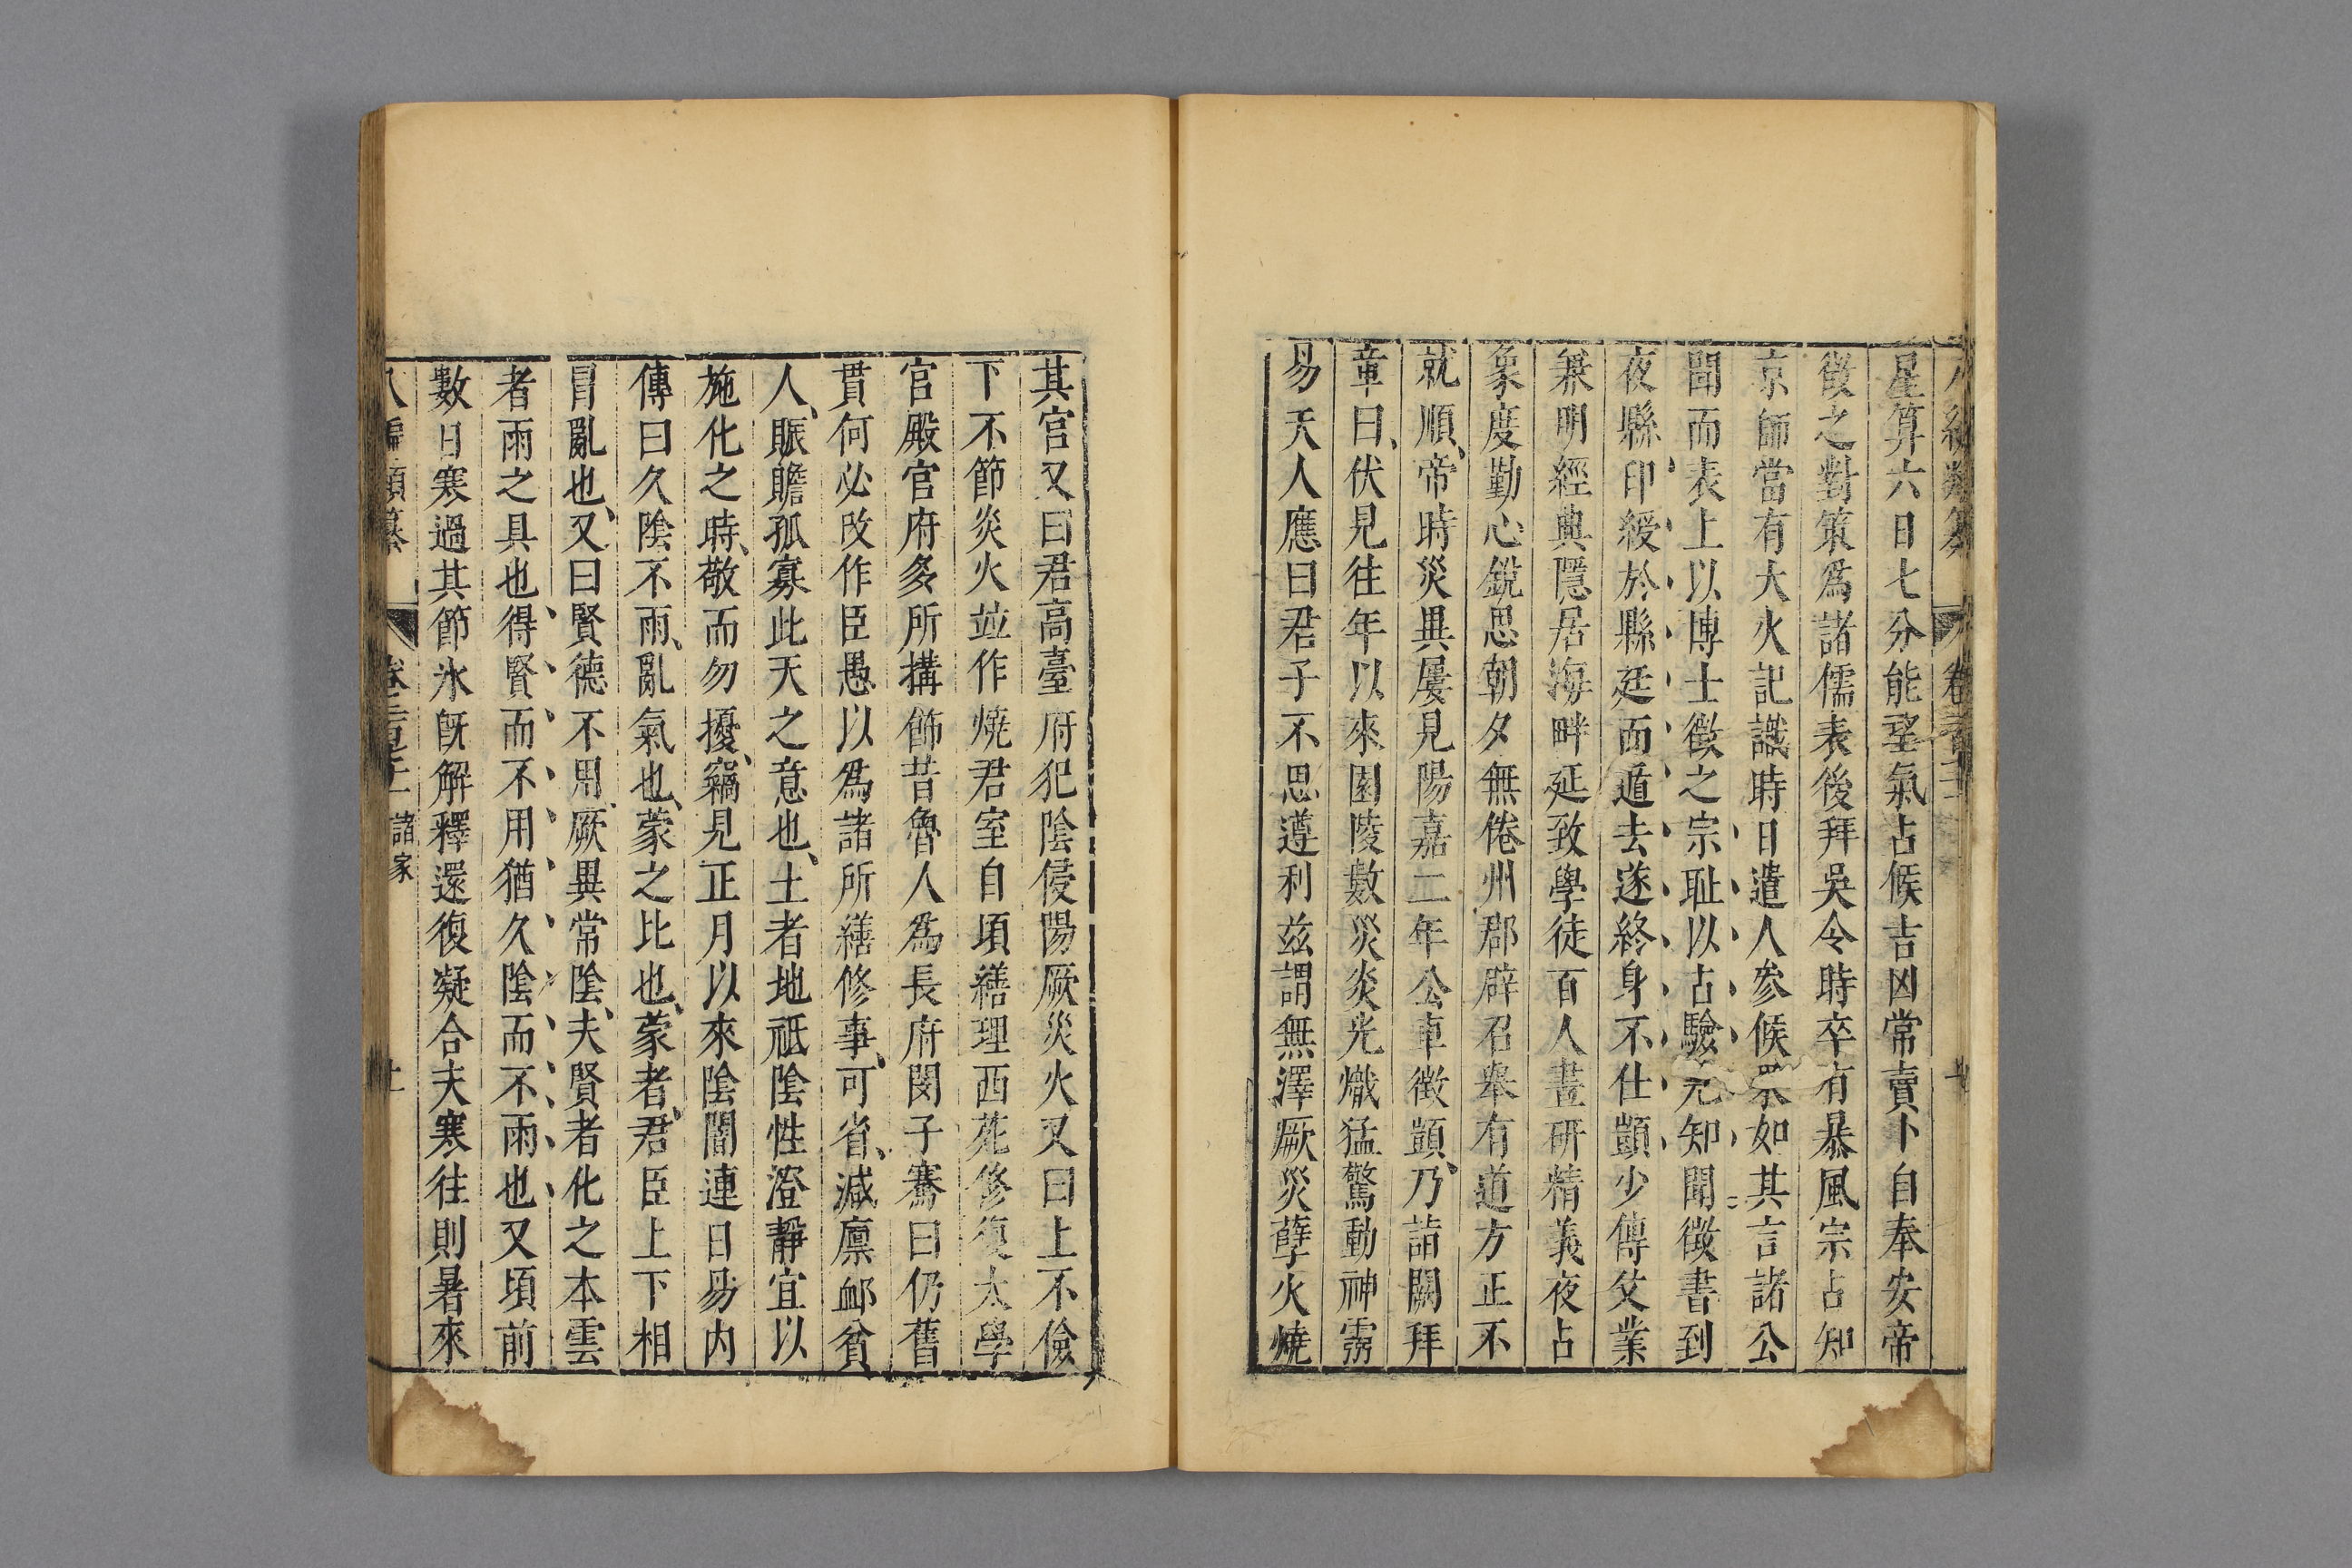 星算六日七分能望氣占候吉凶常賣卜自奉安帝
徵之對策爲諸儒表後拜吳令時卒有暴風宗占知
京師當有大火記識時日遣人參候果如其言諸公
聞而表上以博士徵之宗耻以占驗見知聞徵書到
夜縣印綬於縣廷而遁去遂終身不仕顗少傳父業
兼明經典隱居海畔延致學徒百人晝研精義夜占
象度勤心銳思朝夕無倦州郡辟召舉有道方正不
就順帝時災異屢見陽嘉二年公車徵顗乃詣闕拜
章曰伏見往年以來園陵數災炎光熾猛驚動神靈
易天人應曰君子不思遵利兹謂無澤厥災孽火燒
其宫又曰君高臺府犯陰侵陽厥災火又曰上不儉
下不節炎火竝作燒君室自頃繕理西苑修復太學
宫殿官府多所搆飾昔魯人爲長府閔子騫曰仍舊
貫何必改作臣愚以爲諸所繕修事可省減廪卹貧
人賑贍孤寡此天之意也土者地祇陰性澄靜宜以
施化之時敬而勿擾竊見正月以來陰闇連日易内
傳曰久陰不雨亂氣也蒙之比也蒙者君臣上下相
冒亂也又曰賢德不用厥異常陰夫賢者化之本雲
者雨之具也得賢而不用猶久陰而不雨也又頃前
數日寒過其節氷旣解釋還復凝合夫寒往則暑來
八編類纂 諸家